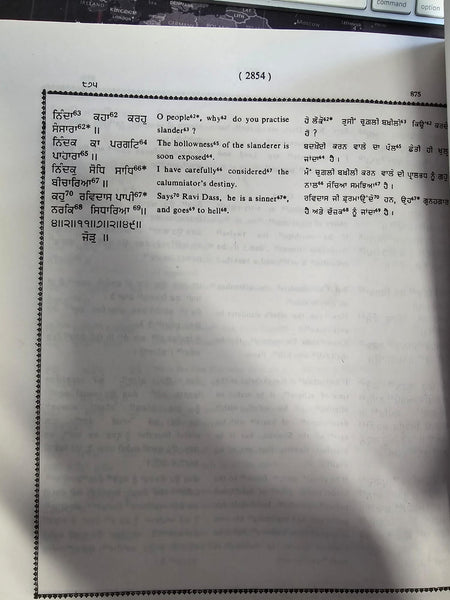 ( 2854 )
੮੭੫
875
ਨਿੰਦਾ63 ਕਹਾ62 ਕਰਹੁ
ਸੰਸਾਰਾ62* ॥
ਨਿੰਦਕ ਕਾ ਪਰਗਟਿ64
ਪਾਹਾਰਾ65 ॥
ਨਿੰਦਕੁ ਸੋਧਿ ਸਾਧਿ66*
ਬੀਚਾਰਿਆ67 ॥
ਕਹੁ70 ਰਵਿਦਾਸ ਪਾਪੀ67*
ਨਰਕਿ68 ਸਿਧਾਰਿਆ 69॥
੪॥੨॥੧੧॥੭॥੨॥੪੯॥
ਜੋੜੁ ॥
O people62*, why62 do you practise
slander63 ?
The hollowness65 of the slanderer is
soon exposed64.
I have carefully66 considered67 the
calumniator's destiny.
Says70 Ravi Dass, he is a sinner67*,
and goes69 to hell68.
ਹੇ ਲੋਕੋ62* ਤੁਸੀਂ ਚੁਗਲੀ ਬਖ਼ੀਲੀ63 ਕਿਉਂ62 ਕਰਦੇ
ਹੋ ?
ਬਦਖੋਈ ਕਰਨ ਵਾਲੇ ਦਾ ਪੋਲ65 ਛੇਤੀ ਹੀ ਖੁਲ੍ਹ
ਜਾਂਦਾ64 ਹੈ ।
ਮੈਂ ਚੁਗਲੀ ਬਖ਼ੀਲੀ ਕਰਨ ਵਾਲੇ ਦੀ ਪ੍ਰਾਲਭਧ ਨੂੰ ਗਹੁ
ਨਾਲ66 ਸੋਚਿਆ ਸਮਝਿਆ67 ਹੈ ।
ਰਵਿਦਾਸ ਜੀ ਫ਼ੁਰਮਾਉਂਦੇ70 ਹਨ, ਉਹ ਗੁਨਹਗਾਰ
ਹੈ ਅਤੇ ਦੋਜ਼ਕ68 ਨੂੰ ਜਾਂਦਾ69 ਹੈ ।
command
option